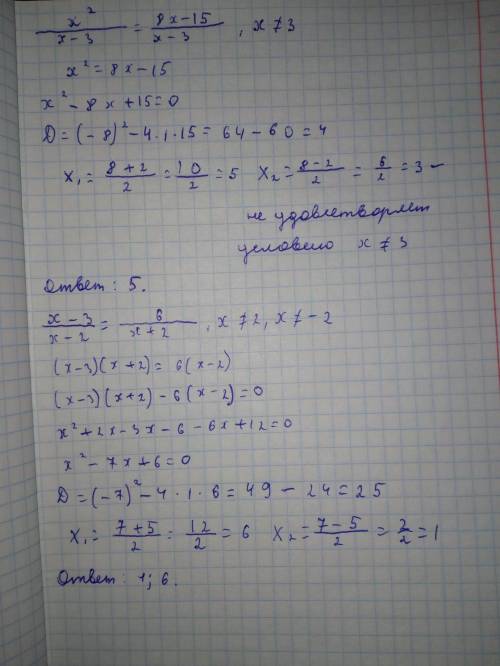 x²/(x-3) = (8x-15)/(x-3), x≠3
x² = 8x-15
x² - 8x + 15 = 0
D = (-8)² - 4·1·15 = 64 - 60 = 4
x₁ = (8+2)/2 = 10/2 = 5 x₂ = (8-2)/2 = 6/2 = 3 -
не удовлетворяет
условию x≠3
Ответ: 5.
(x-3)/(x-2) = 6/(x+2), x≠2, x≠-2
(x-3)(x+2) = 6(x-2)
(x-3)(x+2) - 6(x-2) = 0
x² + 2x - 3x - 6 - 6x + 12 = 0
x² - 7x + 6 = 0
D = (-7)² - 4·1·6 = 49 - 24 = 25
x₁ = (7+5)/2 = 12/2 = 6 x₂ = (7-5)/2 = 2/2 = 1
Ответ: 1; 6.